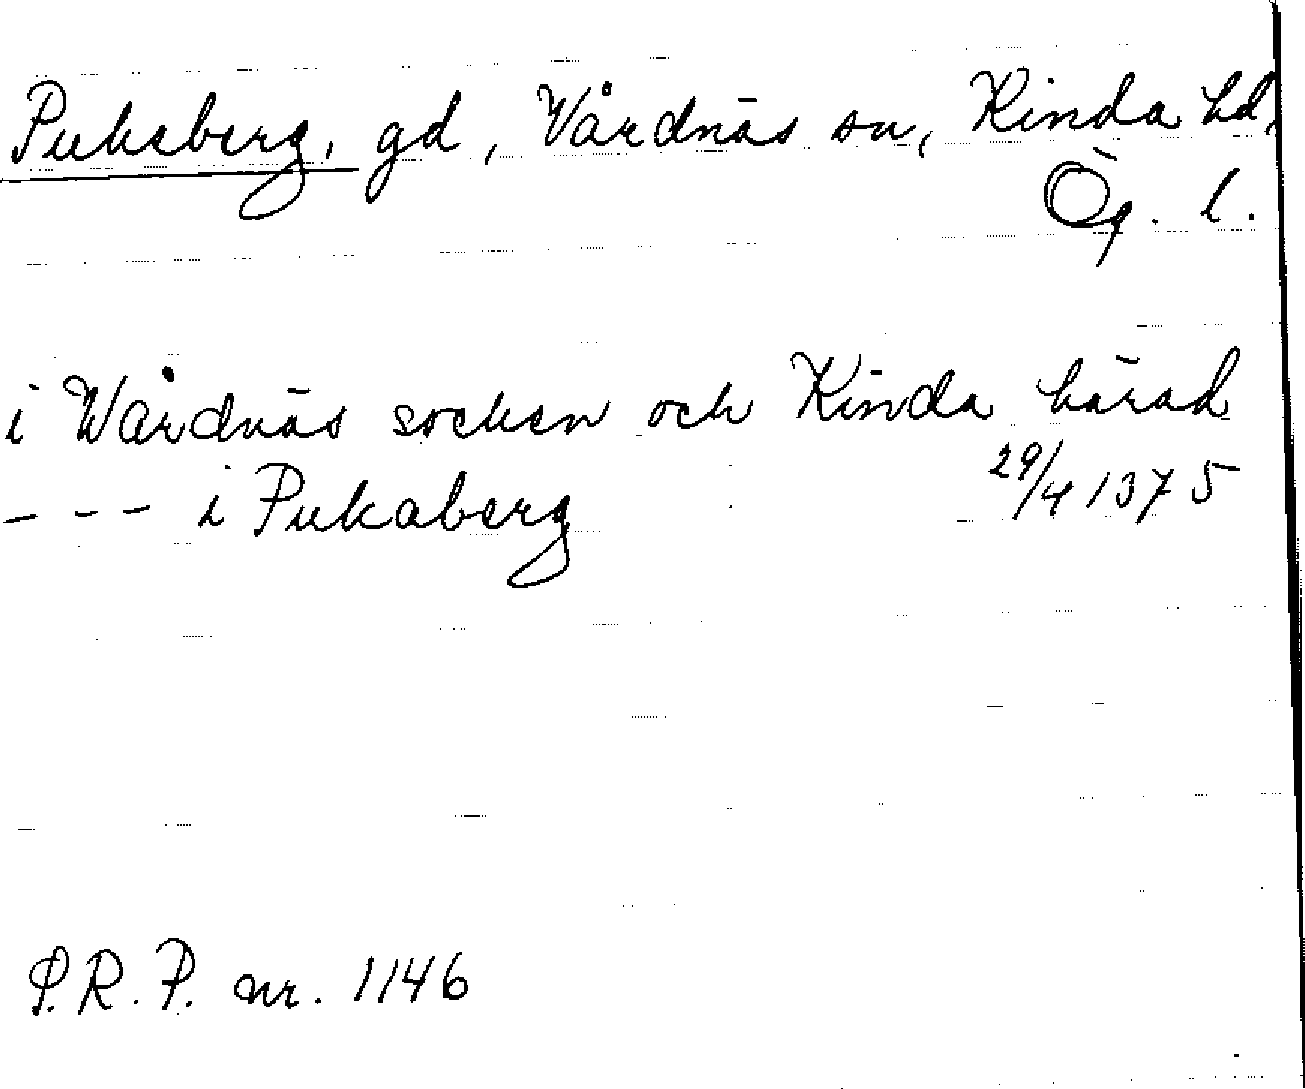 Pukaberg, gd, Vårdnäs sn, Kinda hd,
Ög. l.
i Wårdnäs socken och Kinda härad
--- i Pukaberg 29/4 1375
P.R.P. nr. 1146